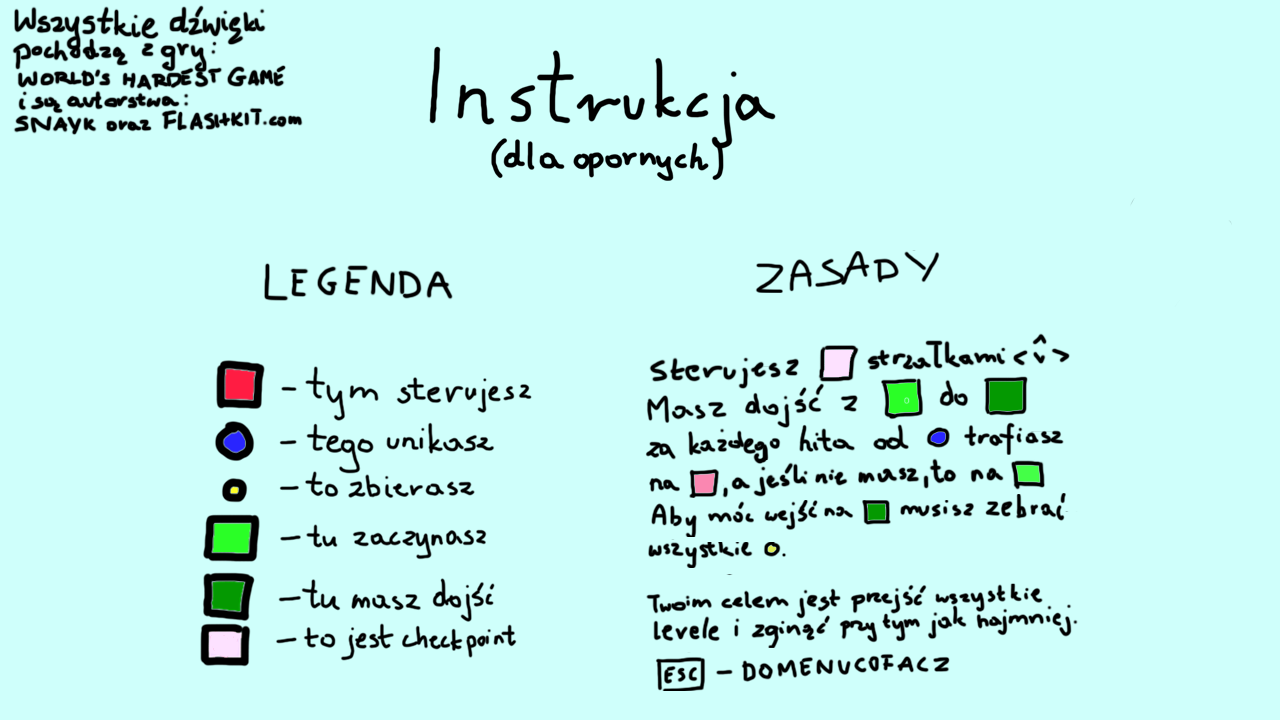 Wszystkie dźwięki
pochodzą z gry:
WORLD'S HARDEST GAME
i są autorstwa:
SNAYK oraz FLASHKIT.com
Instrukcja
(dla opornych)
LEGENDA
- tym sterujesz
- tego unikasz
- to zbierasz
- tu zaczynasz
- tu masz dojść
- to jest checkpoint
ZASADY
Sterujesz strzałkami < ^ v >
Masz dojść z do
za każdego hita od trafiasz
na , a jeśli nie masz, to na
Aby móc wejść na musisz zebrać
wszystkie .
Twoim celem jest przejść wszystkie
levele i zginąć przy tym jak najmniej.
ESC - DOMENUCOFACZ